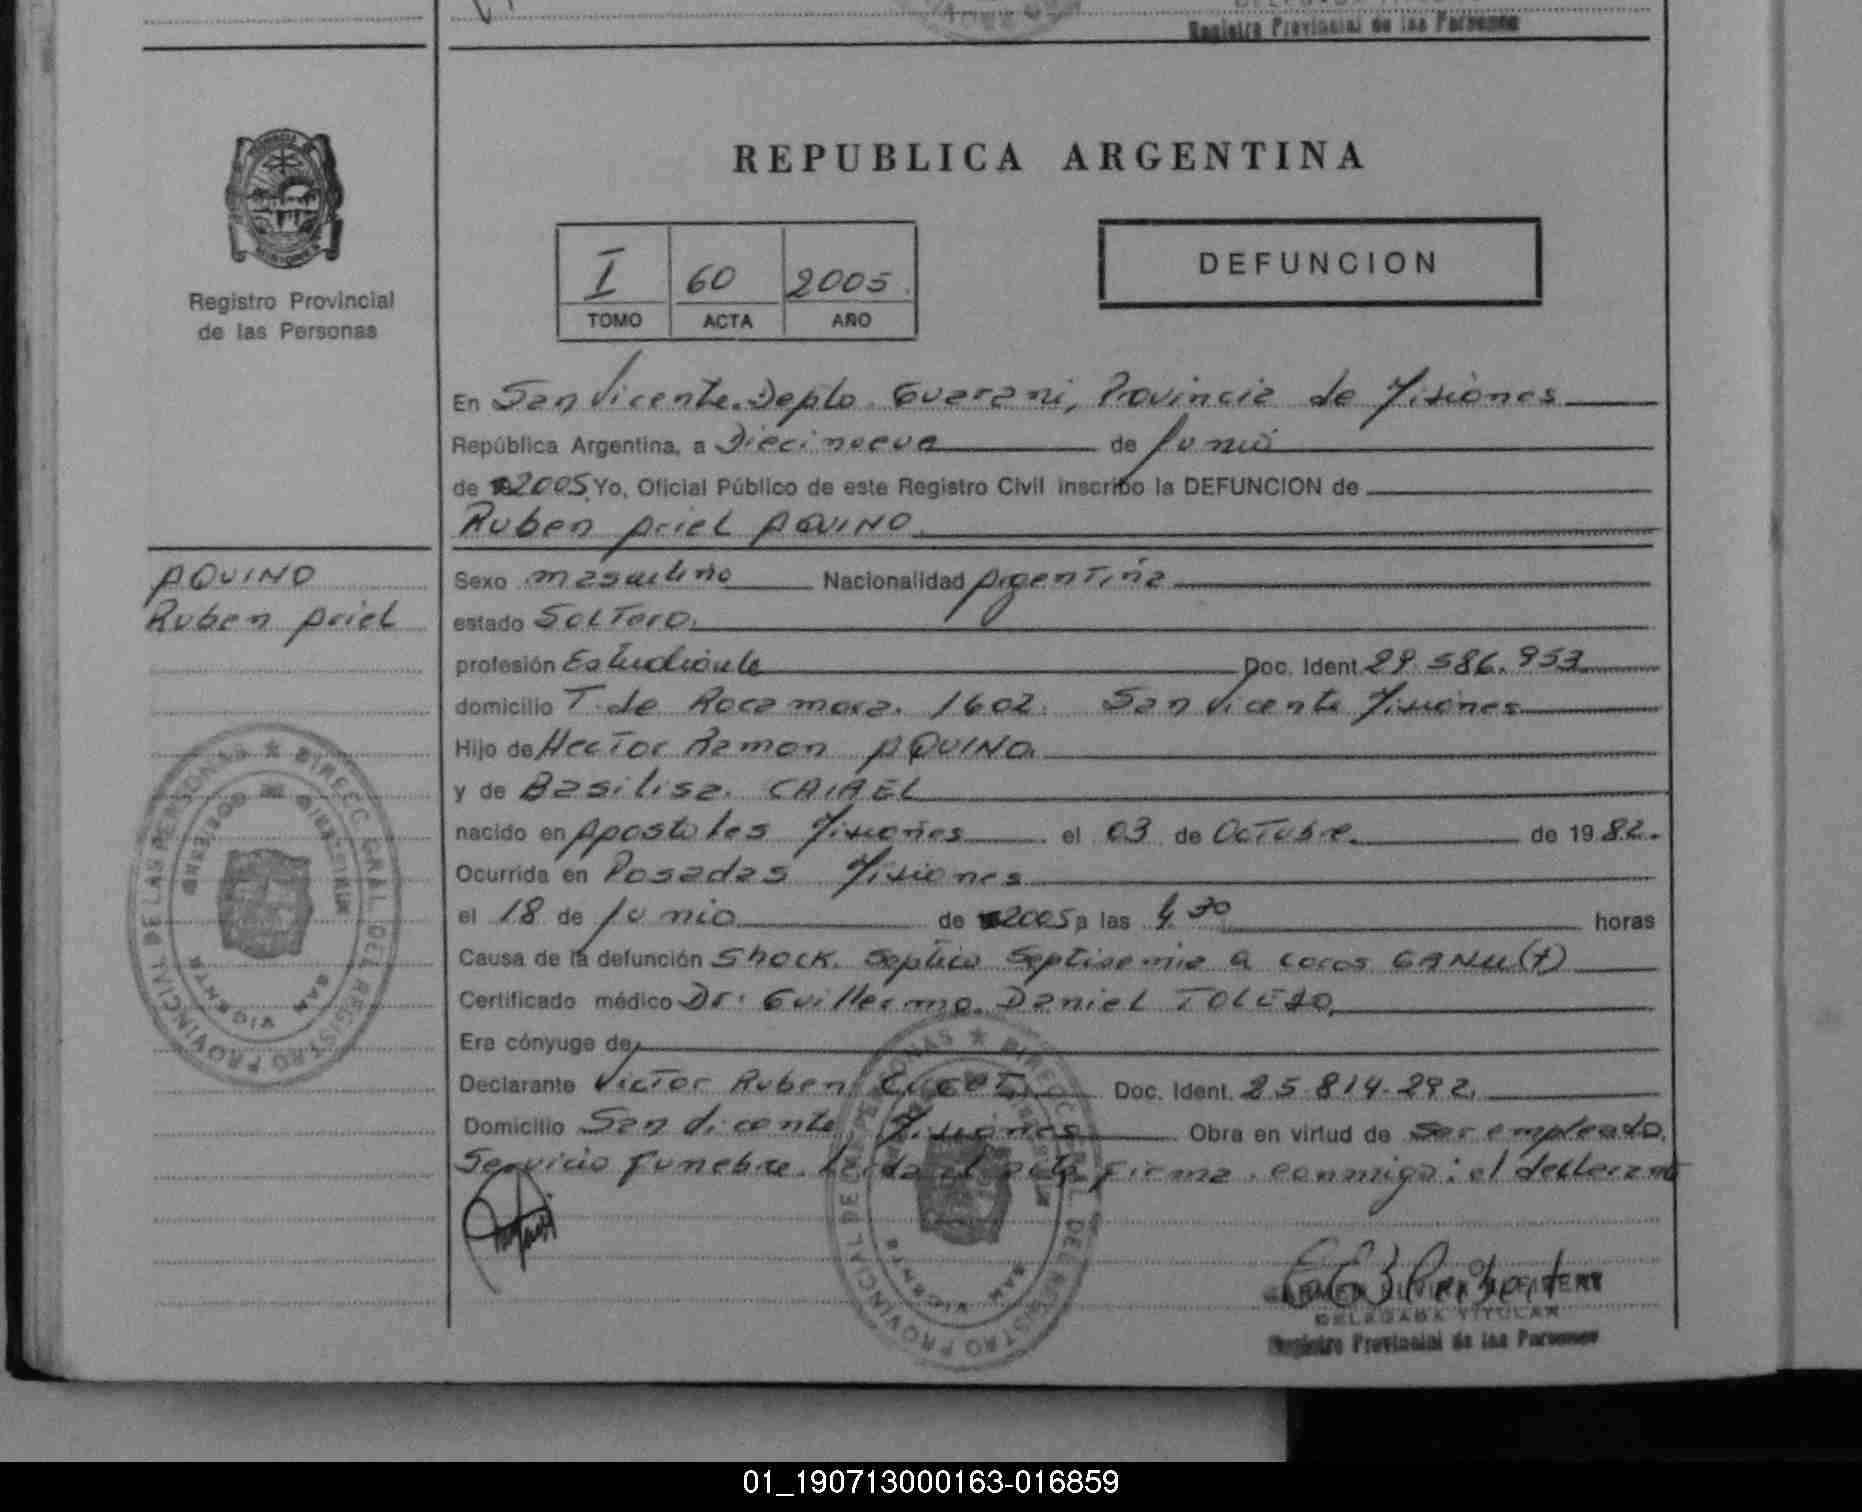 Registro Provincial de las Personas
REPUBLICA ARGENTINA
I 60 2005
TOMO ACTA AÑO
DEFUNCION
Registro Provincial
de las Personas
En San Vicente. Depto Guarani, Provincia de Misiones
República Argentina, a Diecinueve de Junio
de 2005, Yo, Oficial Público de este Registro Civil inscribo la DEFUNCION de
Ruben Ariel AQUINO
AQUINO
Ruben Ariel
Sexo masculino Nacionalidad Argentina
estado Soltero
profesión Estudiante Doc. Ident. 29.586.953
domicilio T. de Rocamora. 1602. San Vicente Misiones
Hijo de Hector Ramon AQUINO
y de Basilisa
nacido en Apostoles Misiones el 03 de Octubre de 1982.
Ocurrida en Posadas Misiones
el 18 de Junio de 2005 a las 4.30 horas
Causa de la defunción Shock. Septico Septisemia a cocos (+)
Certificado médico Dr: Guillermo Daniel TOLEDO
Era cónyuge de
Declarante Victor Ruben Doc. Ident. 25.814.292
Domicilio San Vicente, Misiones Obra en virtud de ser empleado
Servicio Funebre. Leida el acta firma conmigo: el declarante
DIREC. GRAL. DEL REGISTRO PROVINCIAL DE LAS PERSONAS
MINISTERIO DE GOBIERNO
SAN VICENTE
DIREC. GRAL. DEL REGISTRO PROVINCIAL DE LAS PERSONAS
SAN VICENTE
DELEGADA TITULAR
Registro Provincial de las Personas
01_190713000163-016859